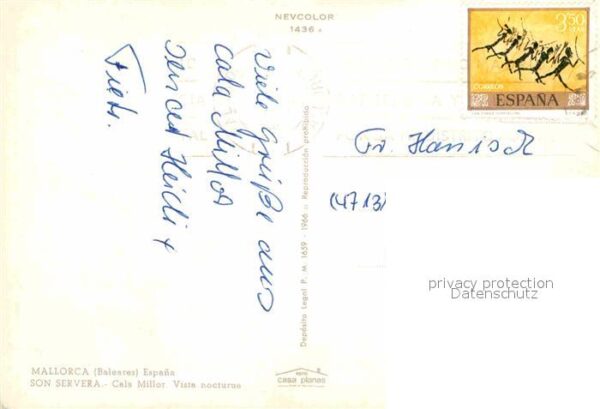 NEVCOLOR
1436
3,50
PTAS
CORREOS
ESPAÑA
Viele Grüße aus
Cala Millor
Heidi +
Fr. Hanisch
(4713)
Depósito Legal P. M. 1659 - 1966 Reproducción prohibida
privacy protection
Datenschutz
MALLORCA (Baleares) España
SON SERVERA.- Cala Millor. Vista nocturna
casa planas